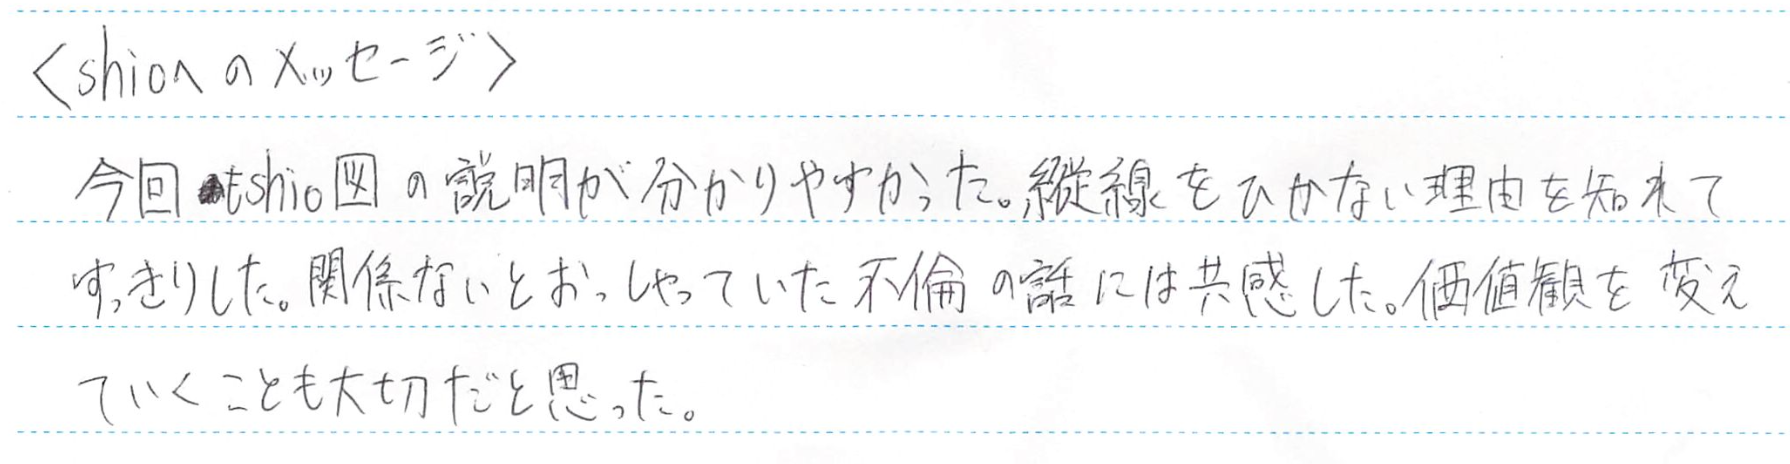 〈shioへのメッセージ〉
今回もshio図の説明が分かりやすかった。縦線をひかない理由を知れて
すっきりした。関係ないとおっしゃっていた不倫の話には共感した。価値観を変え
ていくことも大切だと思った。